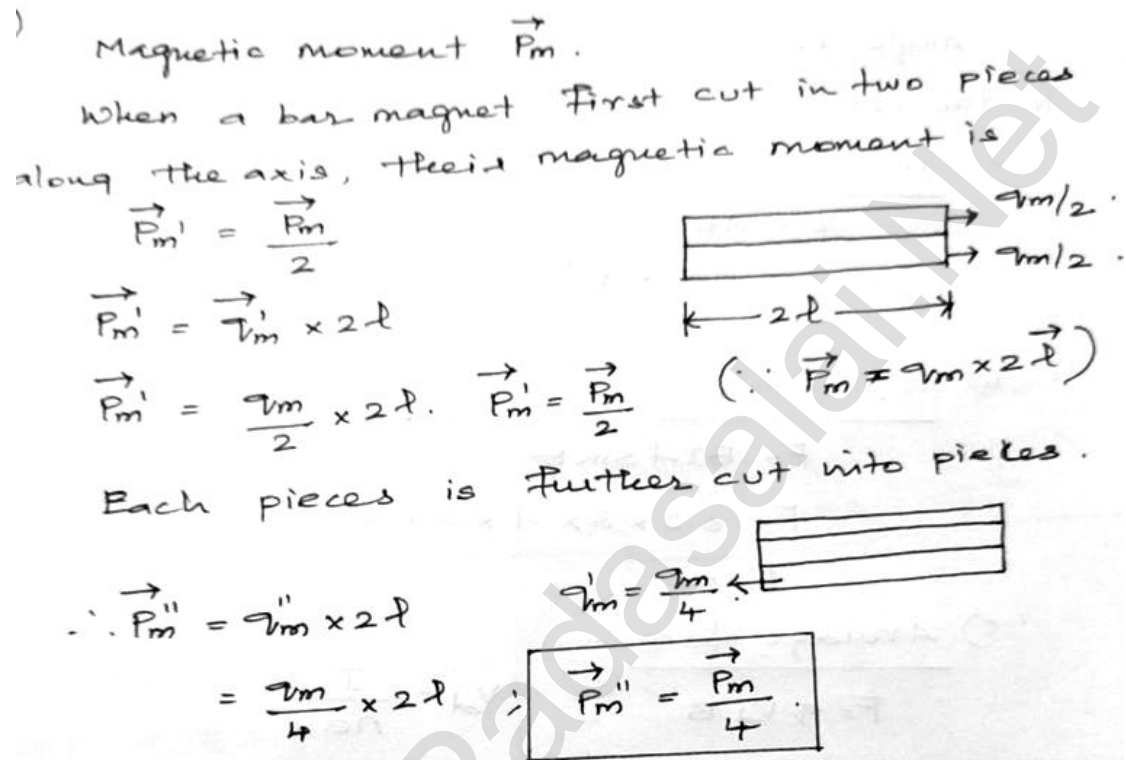 )
Magnetic moment $\vec{P_m}$.
When a bar magnet First cut in two pieces
along the axis, their magnetic moment is
$\vec{P_m}' = \frac{\vec{P_m}}{2}$
qm/2.
qm/2.
$\vec{P_m'} = \vec{q_m'} \times 2l$
2l
$\vec{P_m'} = \frac{q_m}{2} \times 2l.$ $\vec{P_m'} = \frac{\vec{P_m}}{2}$ $(\because \vec{P_m} = q_m \times 2\vec{l})$
Each pieces is further cut into pieces.
$q_m' = \frac{q_m}{4}$
$\therefore \vec{P_m}'' = q_m'' \times 2l$
$= \frac{q_m}{4} \times 2l$ ; $\vec{P_m}'' = \frac{\vec{P_m}}{4}.$
Padasalai.Net